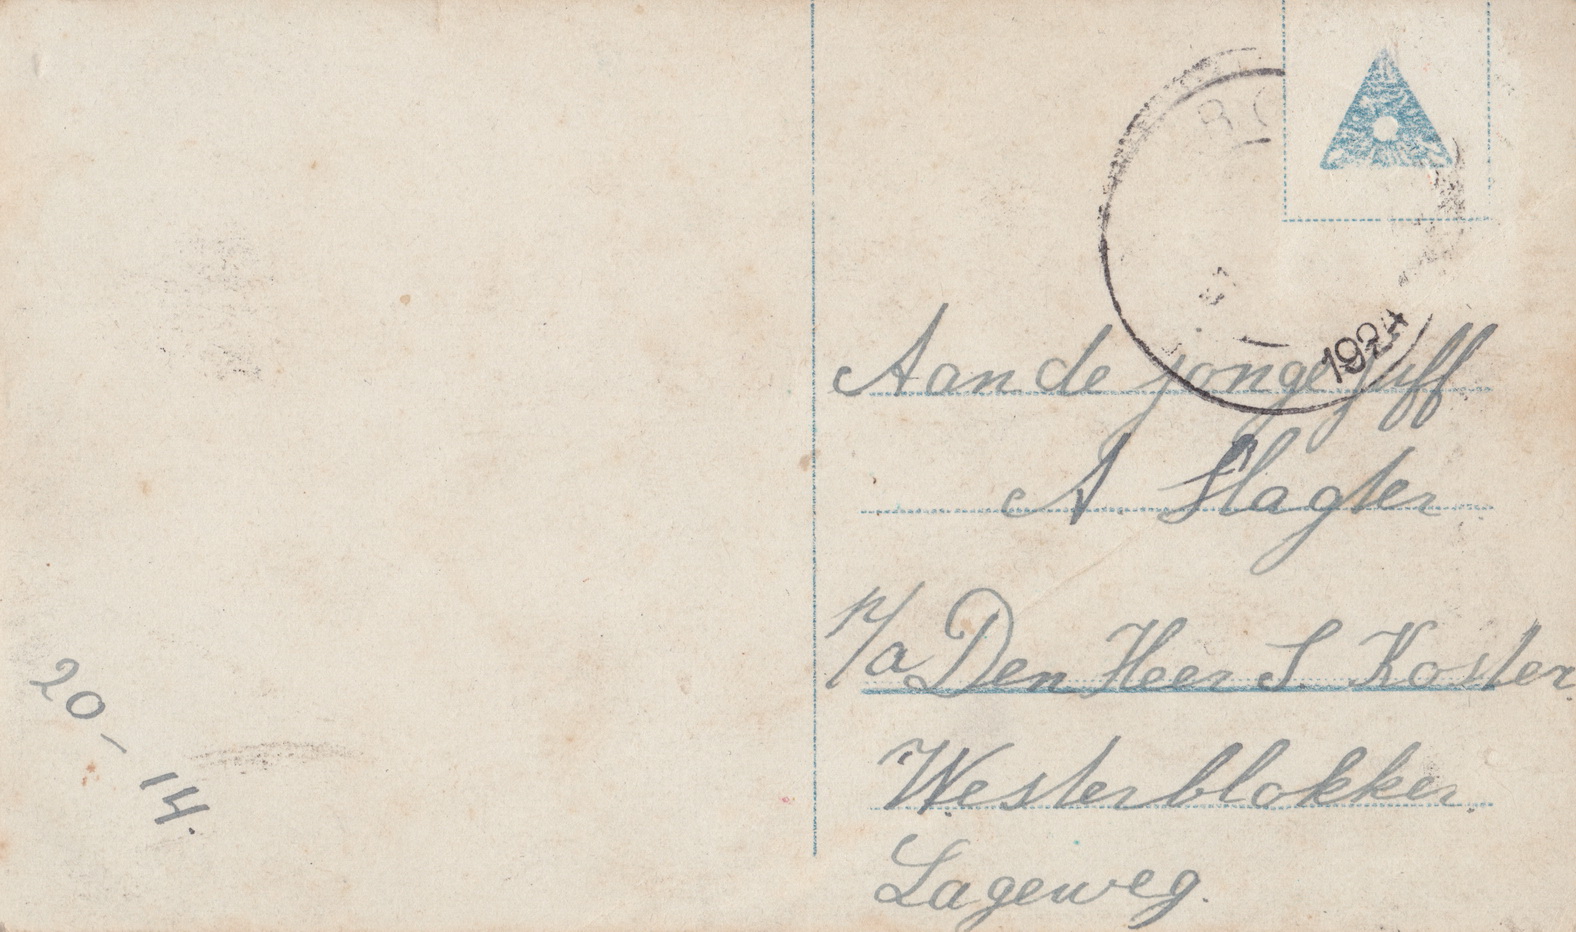 1924
Aan de jonge juff
A Slagter
p/a Den Heer S. Koster
Westerblokker.
Lageweg.
20-14.